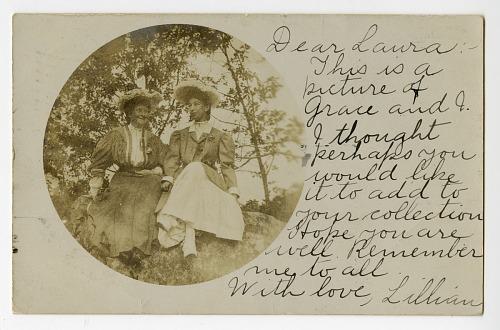 Dear Laura:-
This is a
picture of
Grace and I.
I thought
perhaps you
would like
it to add to
your collection
Hope you are
well. Remember
me to all.
With love, Lillian